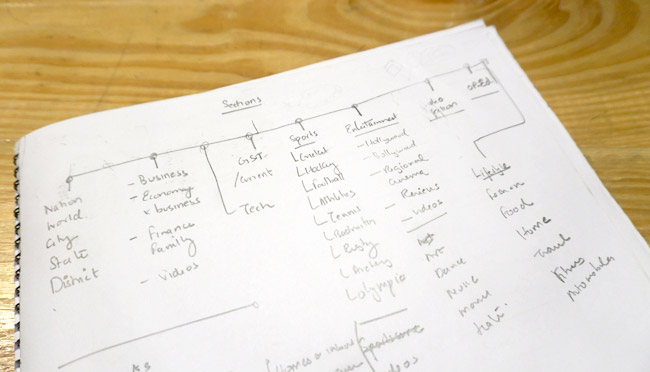 Sections
Nation
World
City
State
District
- Business
- Economy
& business
- Finance
family
- Videos
GST
/current
Tech
Sports
Cricket
Hockey
football
Athletics
Tennis
Badminton
Rugby
Olympic
Entertainment
- Hollywood
- Bollywood
- Regional
Cinema
- Reviews
- videos
Art
Dance
Music
OP.Ed
Lifestyle
fashion
food
Home
Travel
Fitness
Automobiles